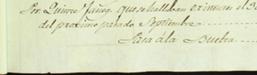 Por Quince faneg. que se hallaban existentes el
del proximo pasado Septiembre
Para á la Buelta